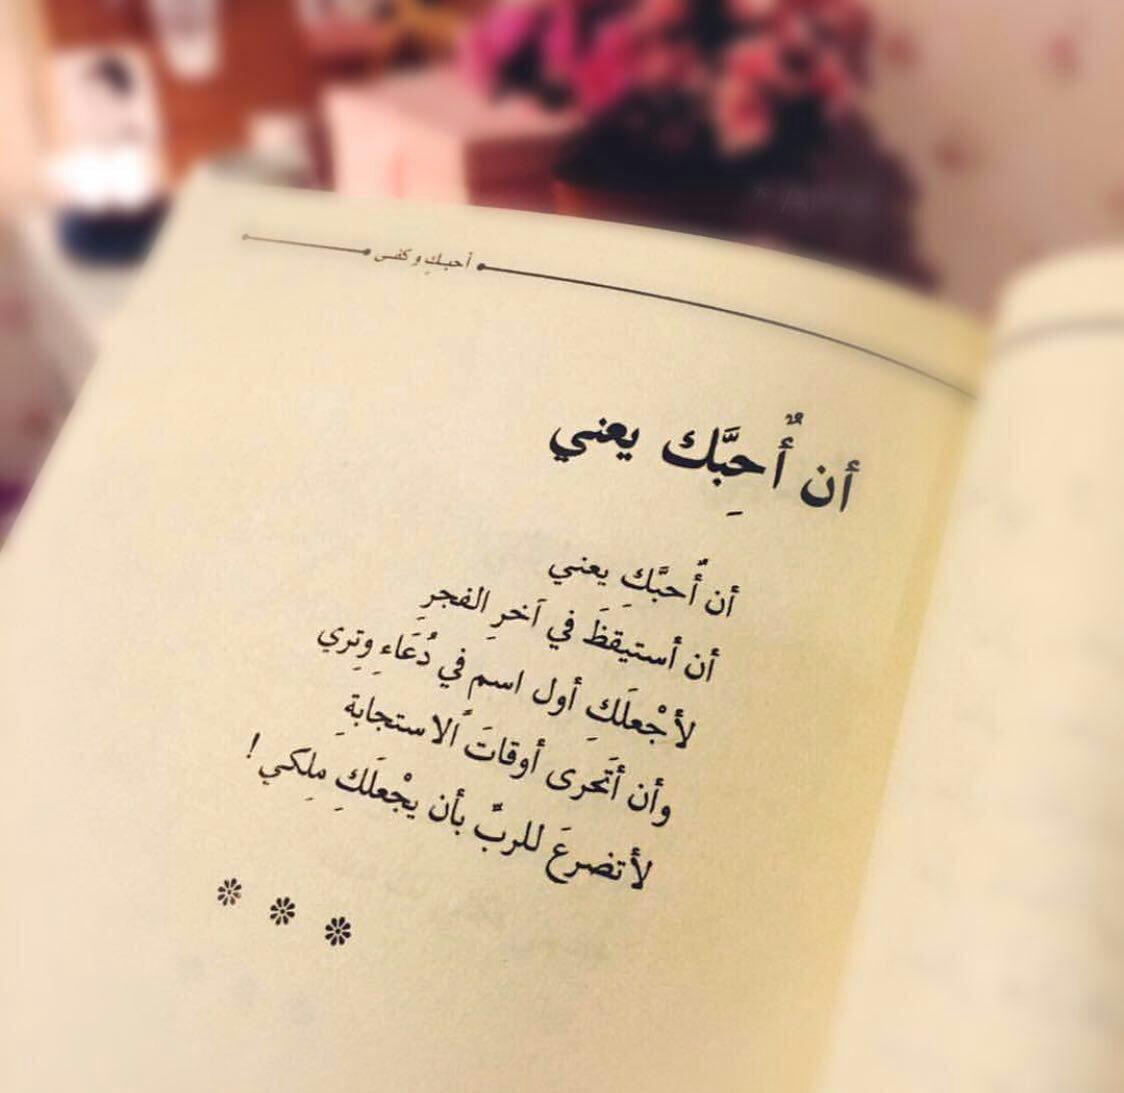 أحبكِ وكفى
أن أُحِبَّك يعني
أن أُحبَّكِ يعني
أن أستيقظَ في آخرِ الفجرِ
لأجْعلَكِ أول اسمٍ في دُعَاءِ وِتِري
وأن أتَحرى أوقاتَ الاستجابةِ
لأتضرعَ للربِّ بأن يجْعلَكِ مِلكي !